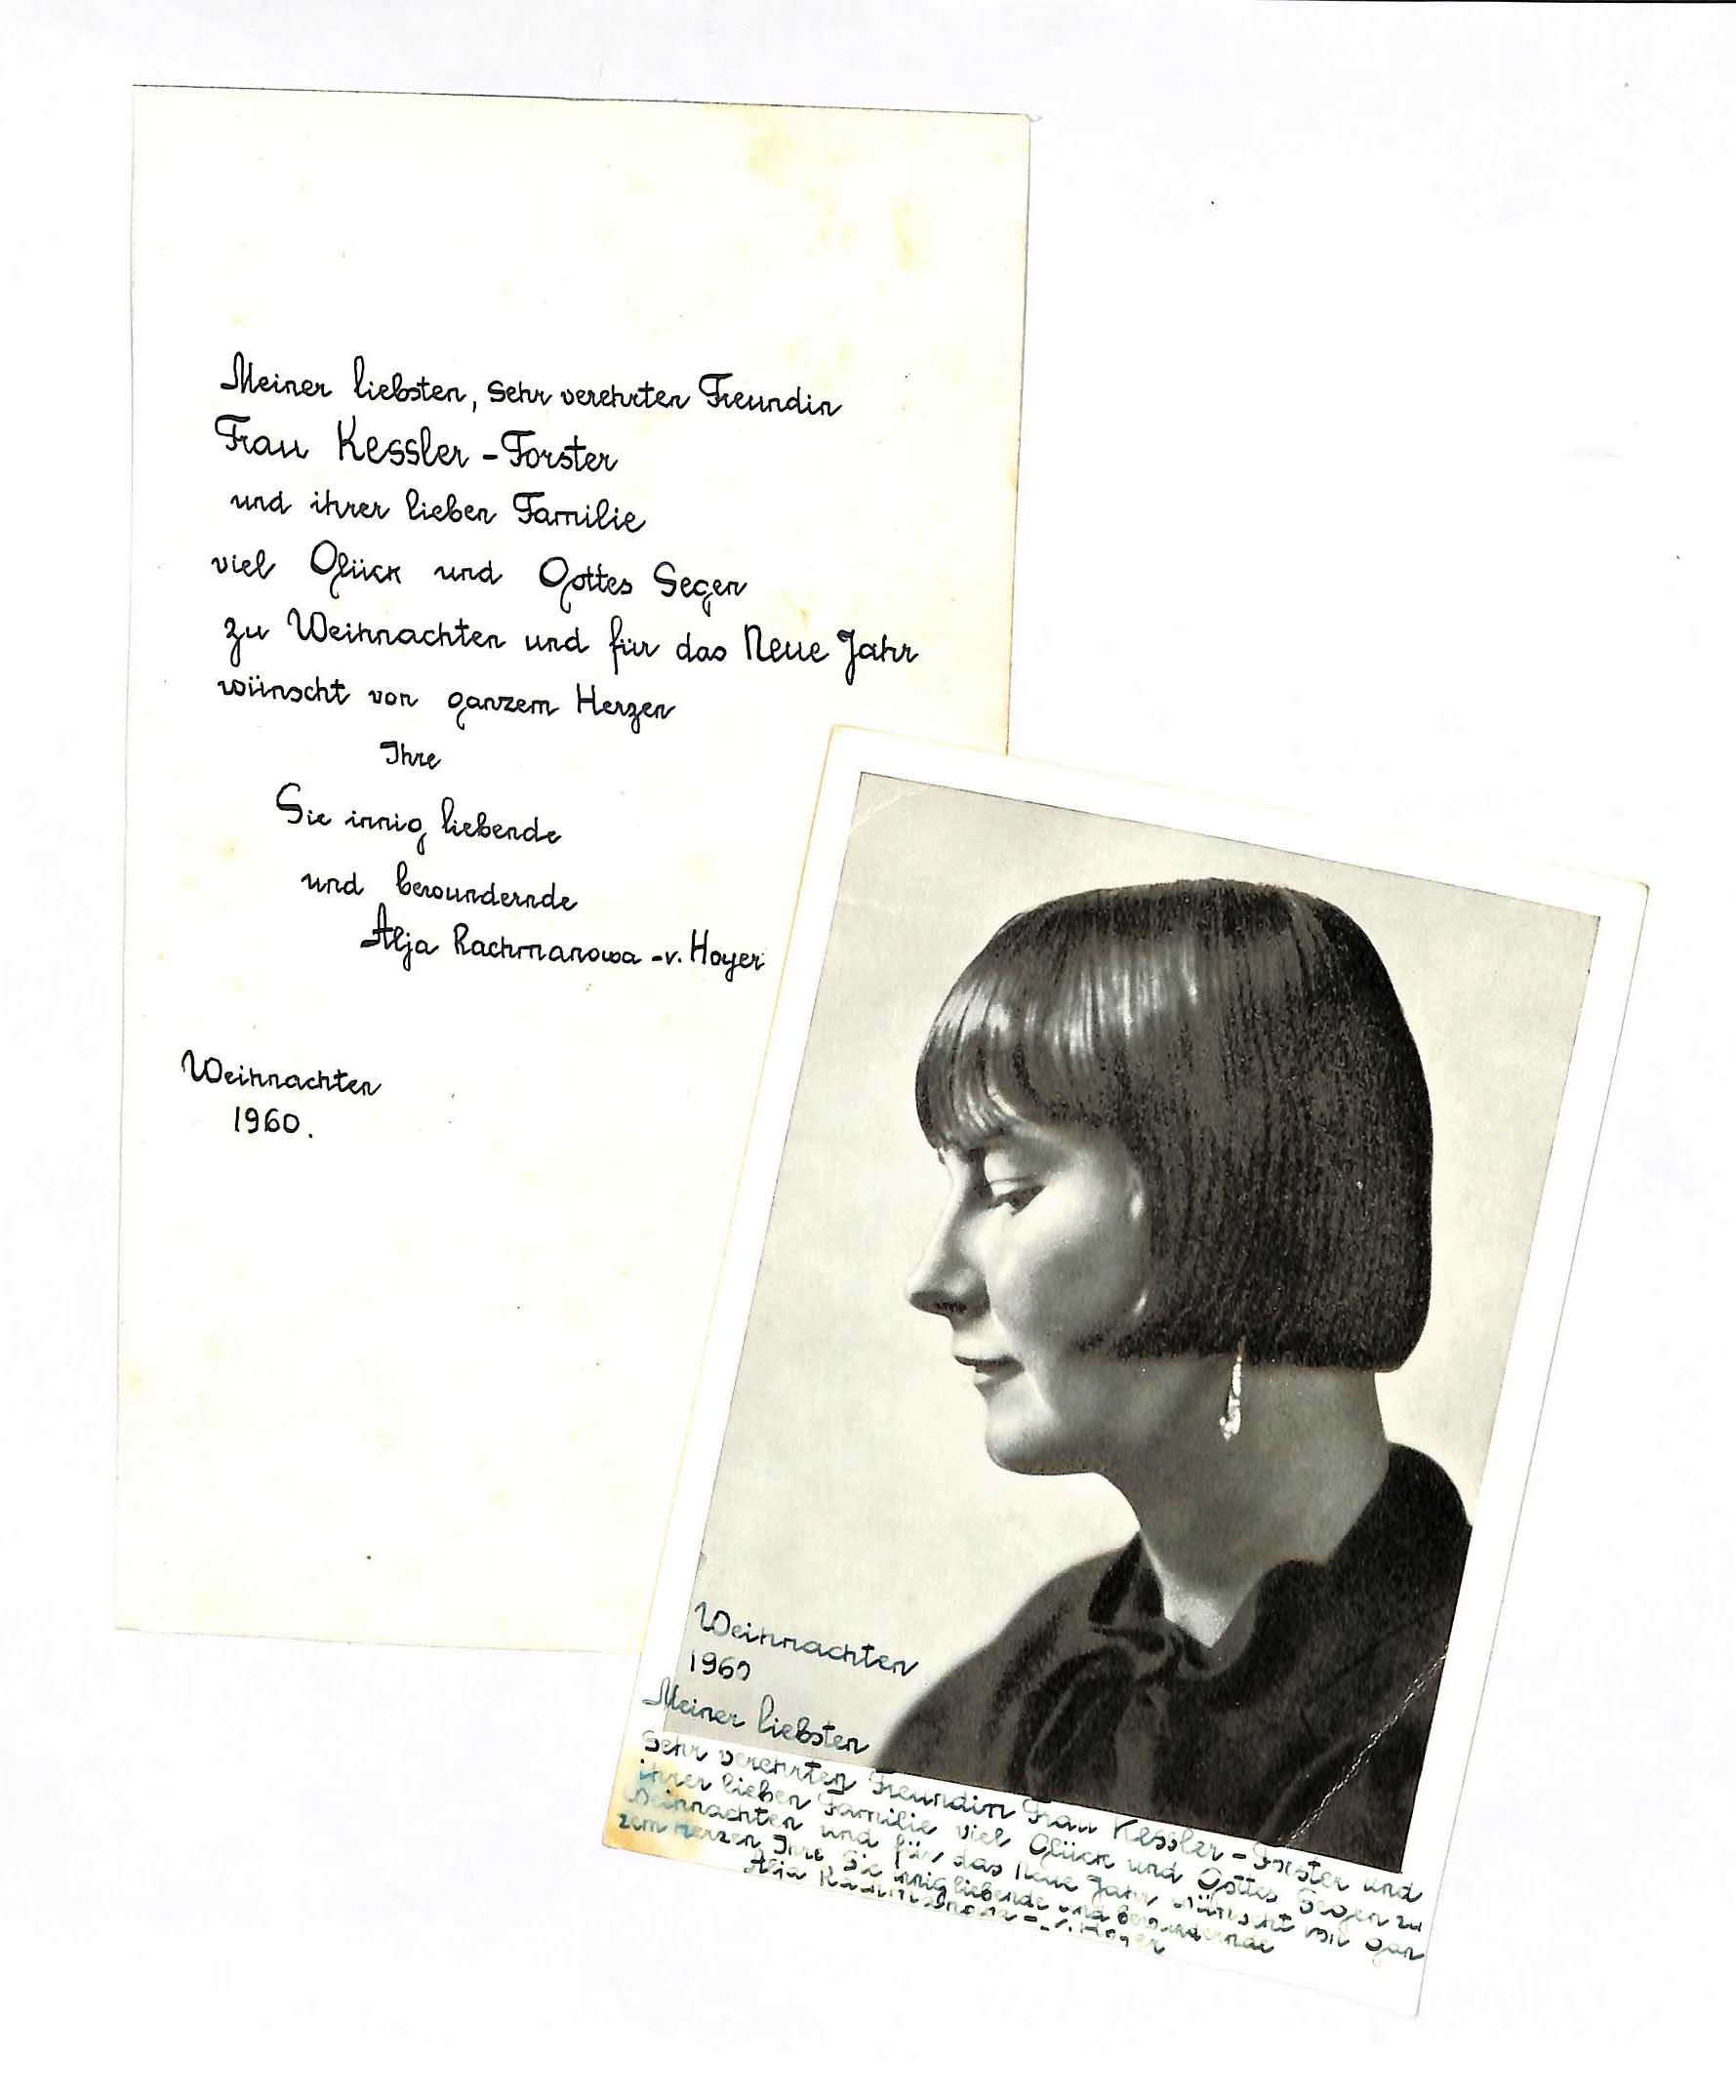 Meiner liebsten, sehr verehrten Freundin
Frau Kessler-Forster
und ihrer lieben Familie
viel Glück und Gottes Segen
zu Weihnachten und für das Neue Jahr
wünscht von ganzem Herzen
Ihre
Sie innig liebende
und bewundernde
Alja Rachmanowa-v. Hoyer
Weihnachten
1960.
Weihnachten
1960
Meiner liebsten
sehr verehrten Freundin Frau Kessler-Forster und
ihrer lieben Familie viel Glück und Gottes Segen zu
Weihnachten und für das neue Jahr wünscht von gan
zem Herzen Ihre Sie innig liebende und bewundernde
Alja Rachmanowa-v. Hoyer